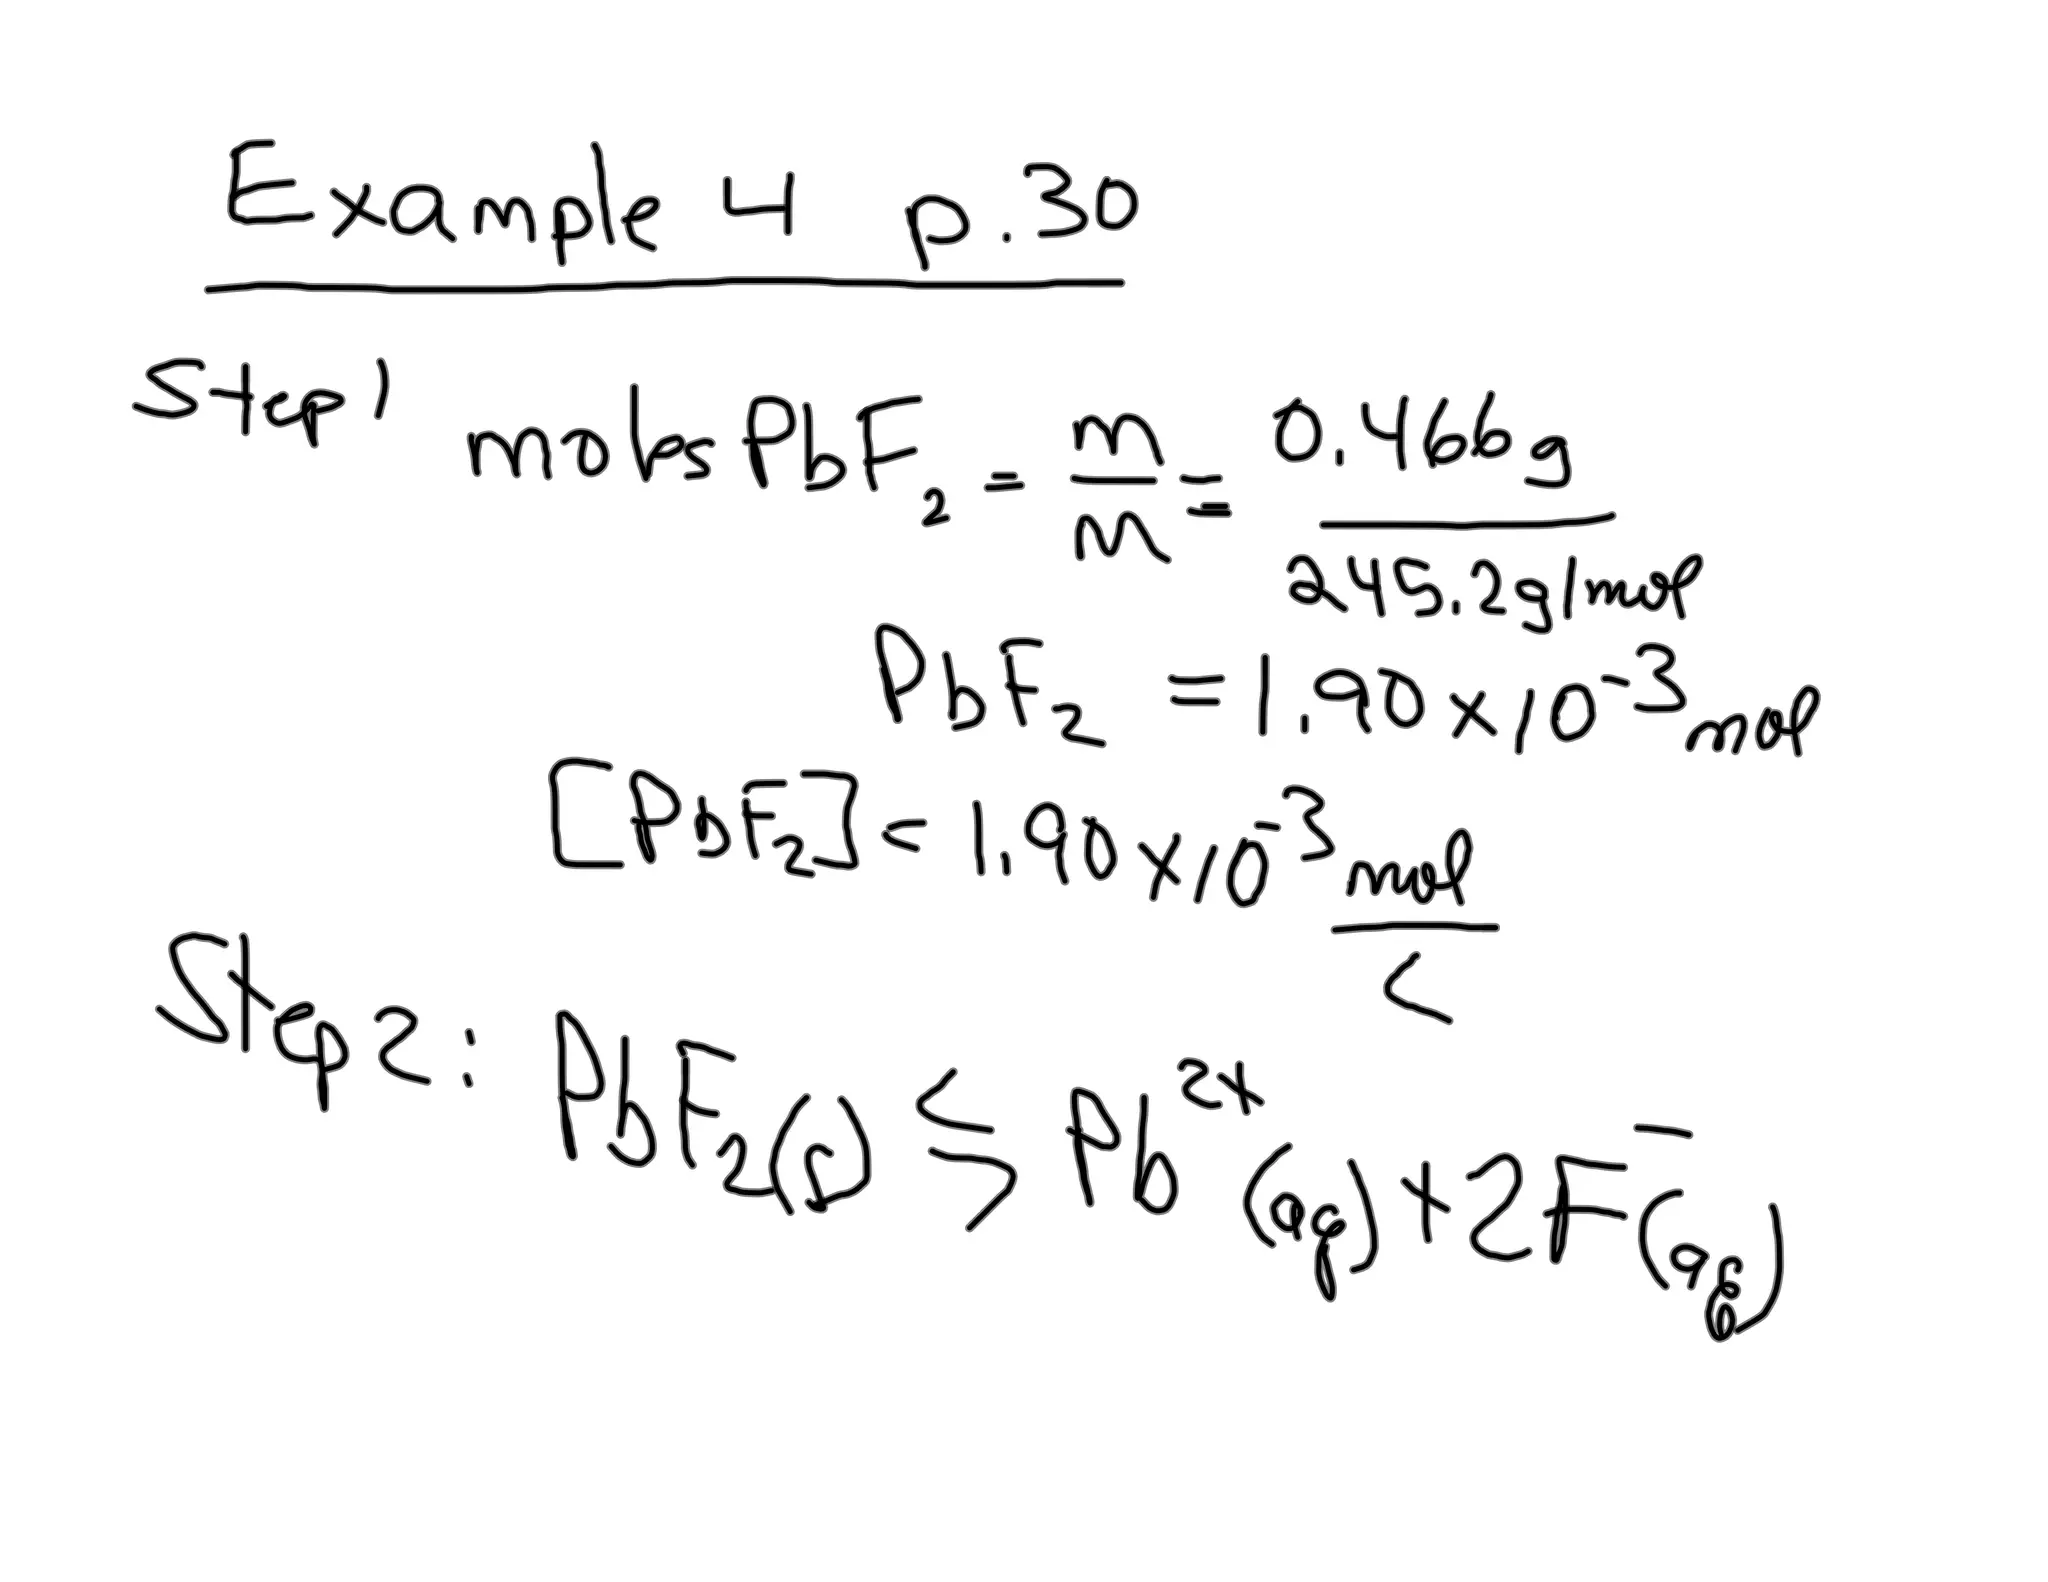 Example 4 p.30
Step 1 moles PbF₂ = m/M = 0.466g/245.2g/mol
PbF₂ = 1.90 x 10⁻³ mol
[PbF₂] = 1.90 x 10⁻³ mol/L
Step 2: PbF₂(s) ⇆ Pb²⁺(aq) + 2F⁻(aq)